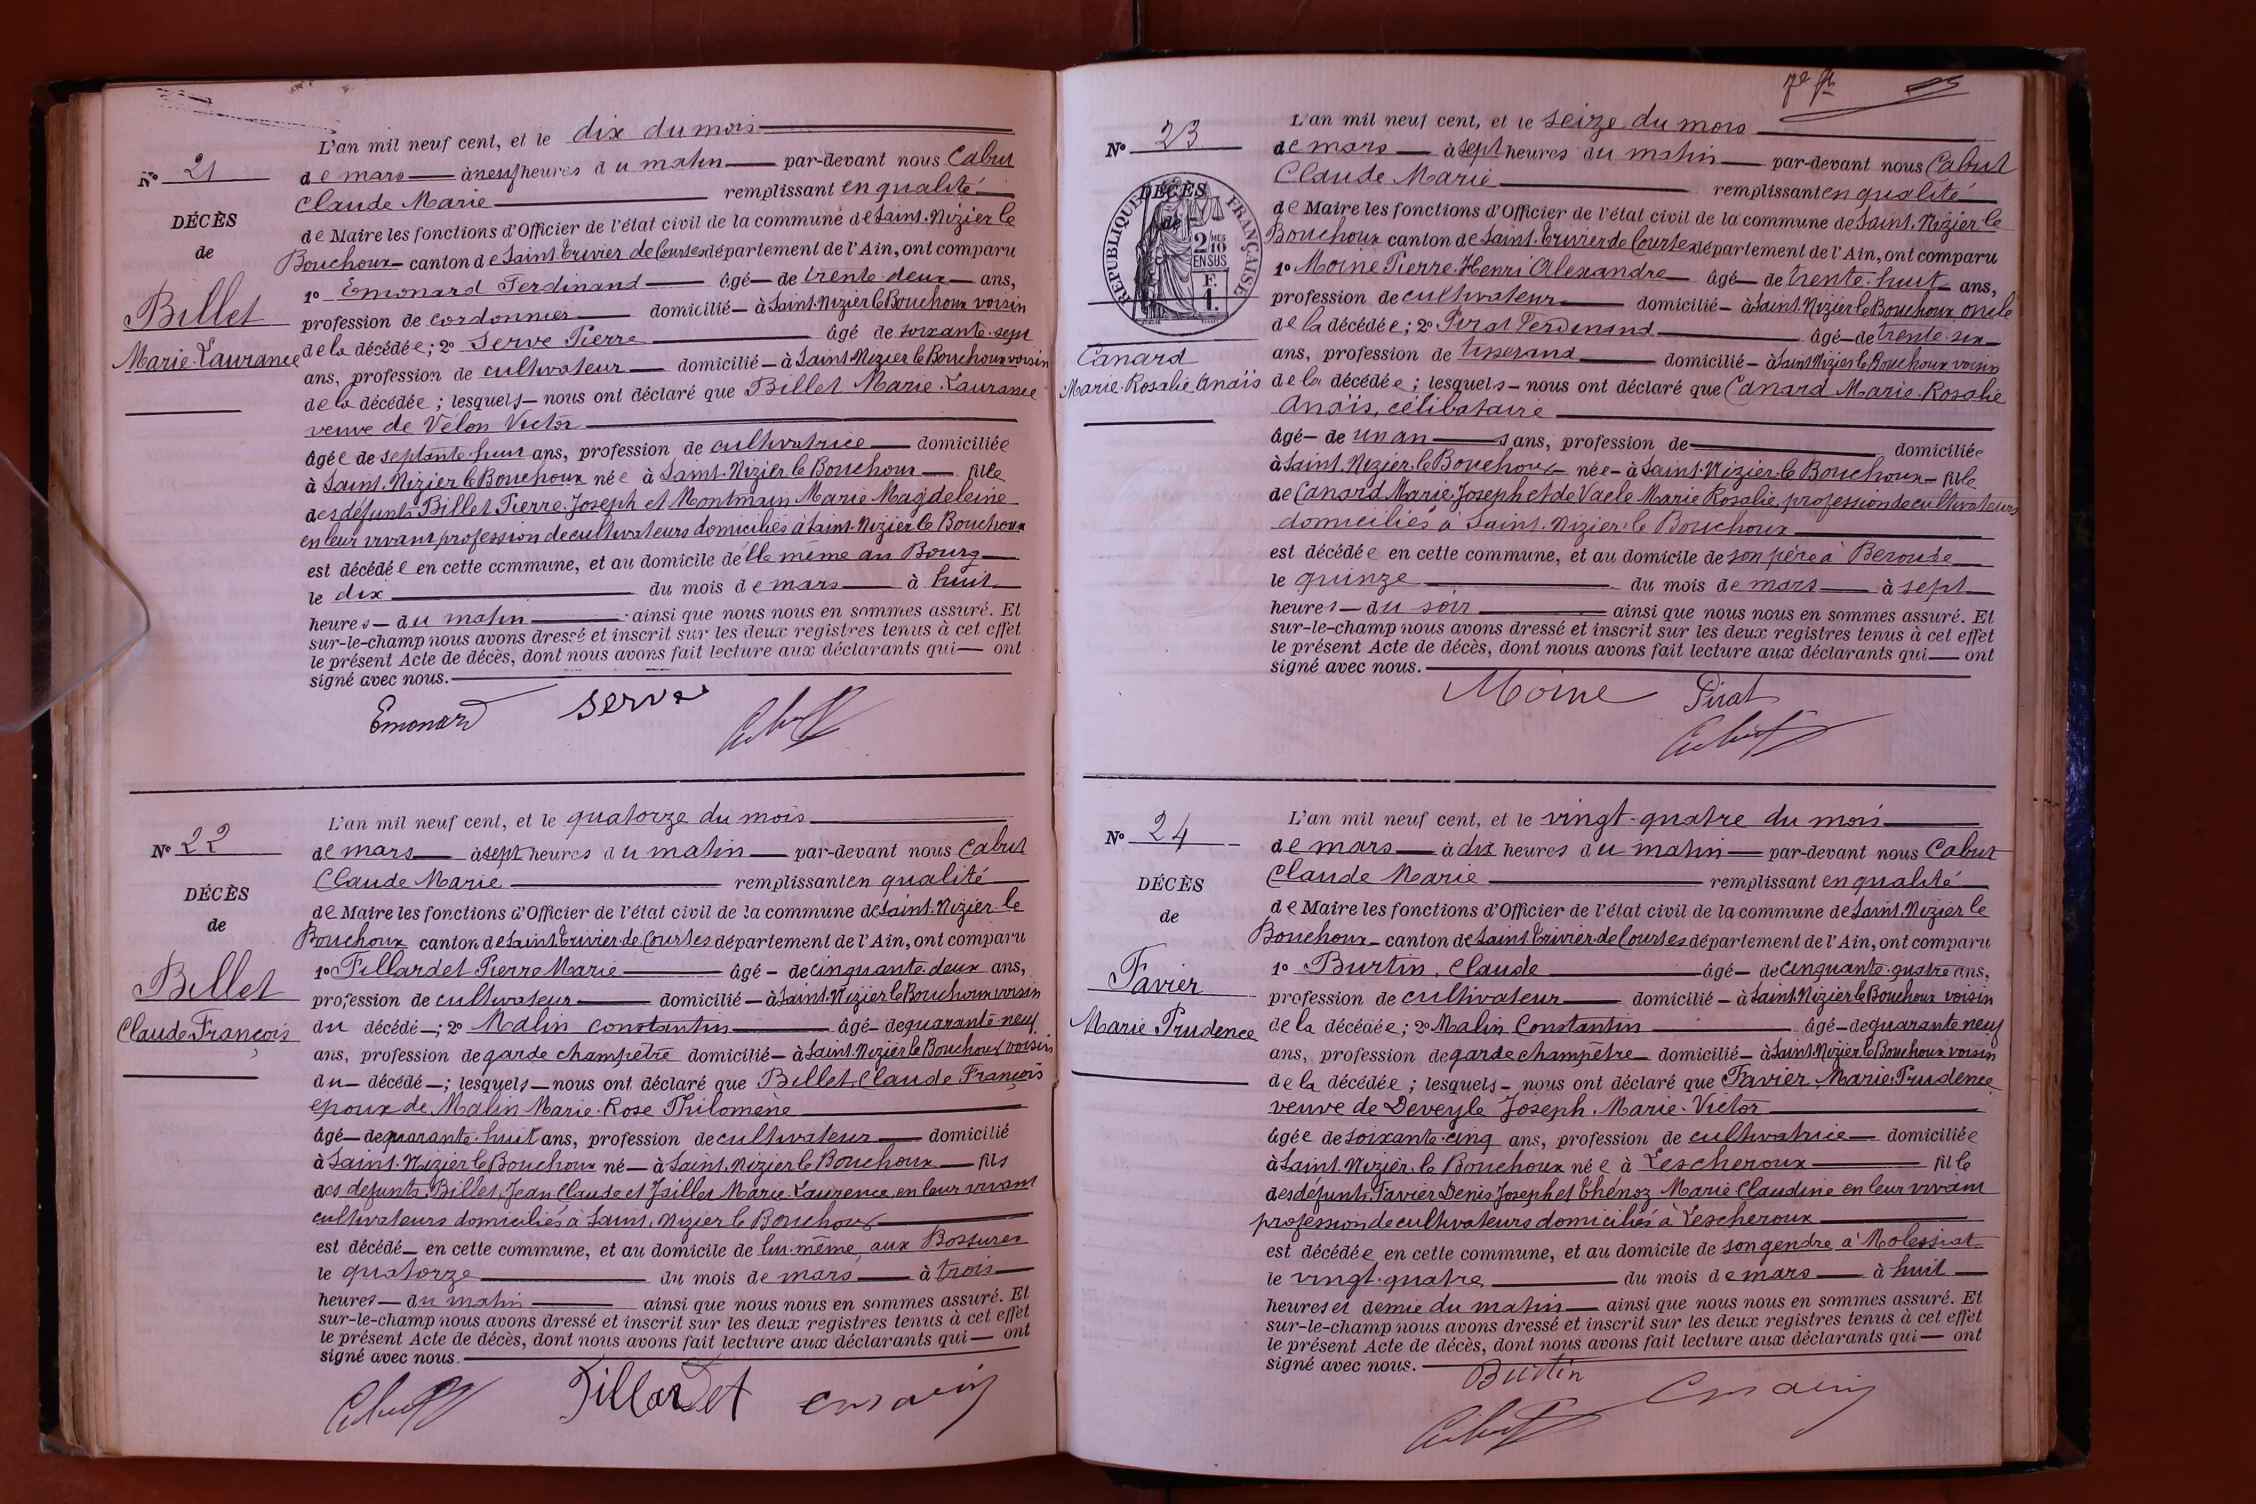 N° 21
DÉCÈS
de
Billet
Marie-Laurance
L'an mil neuf cent, et le dix du mois
de mars à neuf heures du matin par-devant nous Cabut
Claude Marie remplissant en qualité
de Maire les fonctions d'Officier de l'état civil de la commune de Saint-Nizier le
Bouchoux canton de Saint Trivier de Courtes département de l'Ain, ont comparu
1° Emonard Ferdinand âgé de trente-deux ans,
profession de cordonnier domicilié à Saint-Nizier le Bouchoux voisin
de la décédée; 2° Serve Pierre âgé de soixante-sept
ans, profession de cultivateur domicilié à Saint Nizier le Bouchoux voisin
de la décédée; lesquels nous ont déclaré que Billet Marie-Laurance
veuve de Vélon Victor
âgée de septante-huit ans, profession de cultivatrice domiciliée
à Saint-Nizier le Bouchoux née à Saint-Nizier le Bouchoux fille
des défunts Billet Pierre-Joseph et Montmain Marie Magdeleine
en leur vivant profession de cultivateurs domiciliés à Saint-Nizier le Bouchoux
est décédée en cette commune, et au domicile d'elle même au Bourg
le dix du mois de mars à huit
heures du matin ainsi que nous nous en sommes assuré. Et
sur-le-champ nous avons dressé et inscrit sur les deux registres tenus à cet effet
le présent Acte de décès, dont nous avons fait lecture aux déclarants qui ont
signé avec nous.
Emonard Serve Cabut
N° 22
DÉCÈS
de
Billet
Claude-François
L'an mil neuf cent, et le quatorze du mois
de mars à sept heures du matin par-devant nous Cabut
Claude Marie remplissant en qualité
de Maire les fonctions d'Officier de l'état civil de la commune de Saint-Nizier le
Bouchoux canton de Saint Trivier de Courtes département de l'Ain, ont comparu
1° Pillardet Pierre Marie âgé de cinquante-deux ans,
profession de cultivateur domicilié à Saint-Nizier le Bouchoux voisin
du décédé; 2° Malin Constantin âgé de quarante-neuf
ans, profession de garde champêtre domicilié à Saint-Nizier le Bouchoux voisin
du décédé; lesquels nous ont déclaré que Billet Claude François
époux de Malin Marie-Rose Philomène
âgé de quarante-huit ans, profession de cultivateur domicilié
à Saint-Nizier le Bouchoux né à Saint-Nizier le Bouchoux fils
des défunts Billet Jean Claude et Jaillet Marie-Laurence, en leur vivant
cultivateurs domiciliés à Saint-Nizier le Bouchoux
est décédé en cette commune, et au domicile de lui-même aux Bossures
le quatorze du mois de mars à trois
heures du matin ainsi que nous nous en sommes assuré. Et
sur-le-champ nous avons dressé et inscrit sur les deux registres tenus à cet effet
le présent Acte de décès, dont nous avons fait lecture aux déclarants qui ont
signé avec nous.
Cabut Pillardet Cmalin
7e ft
N° 23
DÉCÈS
de
RÉPUBLIQUE FRANÇAISE
2/10 EN SUS
F. 1.
Canard
Marie-Rosalie Anaïs
L'an mil neuf cent, et le seize du mois
de mars à sept heures du matin par-devant nous Cabut
Claude Marie remplissant en qualité
de Maire les fonctions d'Officier de l'état civil de la commune de Saint-Nizier le
Bouchoux canton de Saint-Trivier de Courtes département de l'Ain, ont comparu
1° Moine Pierre-Henri Alexandre âgé de trente-huit ans,
profession de cultivateur domicilié à Saint-Nizier le Bouchoux oncle
de la décédée; 2° Pirat Ferdinand âgé de trente-six
ans, profession de tisserand domicilié à Saint Nizier le Bouchoux voisin
de la décédée; lesquels nous ont déclaré que Canard Marie-Rosalie
Anaïs, célibataire
âgé de un an ans, profession de domiciliée
à Saint-Nizier le Bouchoux née à Saint-Nizier le Bouchoux fille
de Canard Marie-Joseph et de Vaele Marie Rosalie, profession de cultivateurs
domiciliés à Saint-Nizier le Bouchoux
est décédée en cette commune, et au domicile de son père à Beroude
le quinze du mois de mars à sept
heures du soir ainsi que nous nous en sommes assuré. Et
sur-le-champ nous avons dressé et inscrit sur les deux registres tenus à cet effet
le présent Acte de décès, dont nous avons fait lecture aux déclarants qui ont
signé avec nous.
Moine Pirat
Cabut
N° 24
DÉCÈS
de
Favier
Marie Prudence
L'an mil neuf cent, et le vingt-quatre du mois
de mars à dix heures du matin par-devant nous Cabut
Claude Marie remplissant en qualité
de Maire les fonctions d'Officier de l'état civil de la commune de Saint-Nizier le
Bouchoux canton de Saint Trivier de Courtes département de l'Ain, ont comparu
1° Burtin, Claude âgé de cinquante-quatre ans,
profession de cultivateur domicilié à Saint-Nizier le Bouchoux voisin
de la décédée; 2° Malin Constantin âgé de quarante neuf
ans, profession de garde champêtre domicilié à Saint Nizier le Bouchoux voisin
de la décédée; lesquels nous ont déclaré que Favier Marie-Prudence
veuve de Deveyle Joseph-Marie-Victor
âgée de soixante-cinq ans, profession de cultivatrice domiciliée
à Saint-Nizier le Bouchoux née à Lescheroux fille
des défunts Favier Denis Joseph et Thénoz Marie Claudine en leur vivant
profession de cultivateurs domiciliés à Lescheroux
est décédée en cette commune, et au domicile de son gendre à Molessiat
le vingt-quatre du mois de mars à huit
heures et demie du matin ainsi que nous nous en sommes assuré. Et
sur-le-champ nous avons dressé et inscrit sur les deux registres tenus à cet effet
le présent Acte de décès, dont nous avons fait lecture aux déclarants qui ont
signé avec nous.
Burtin Cmalin
Cabut